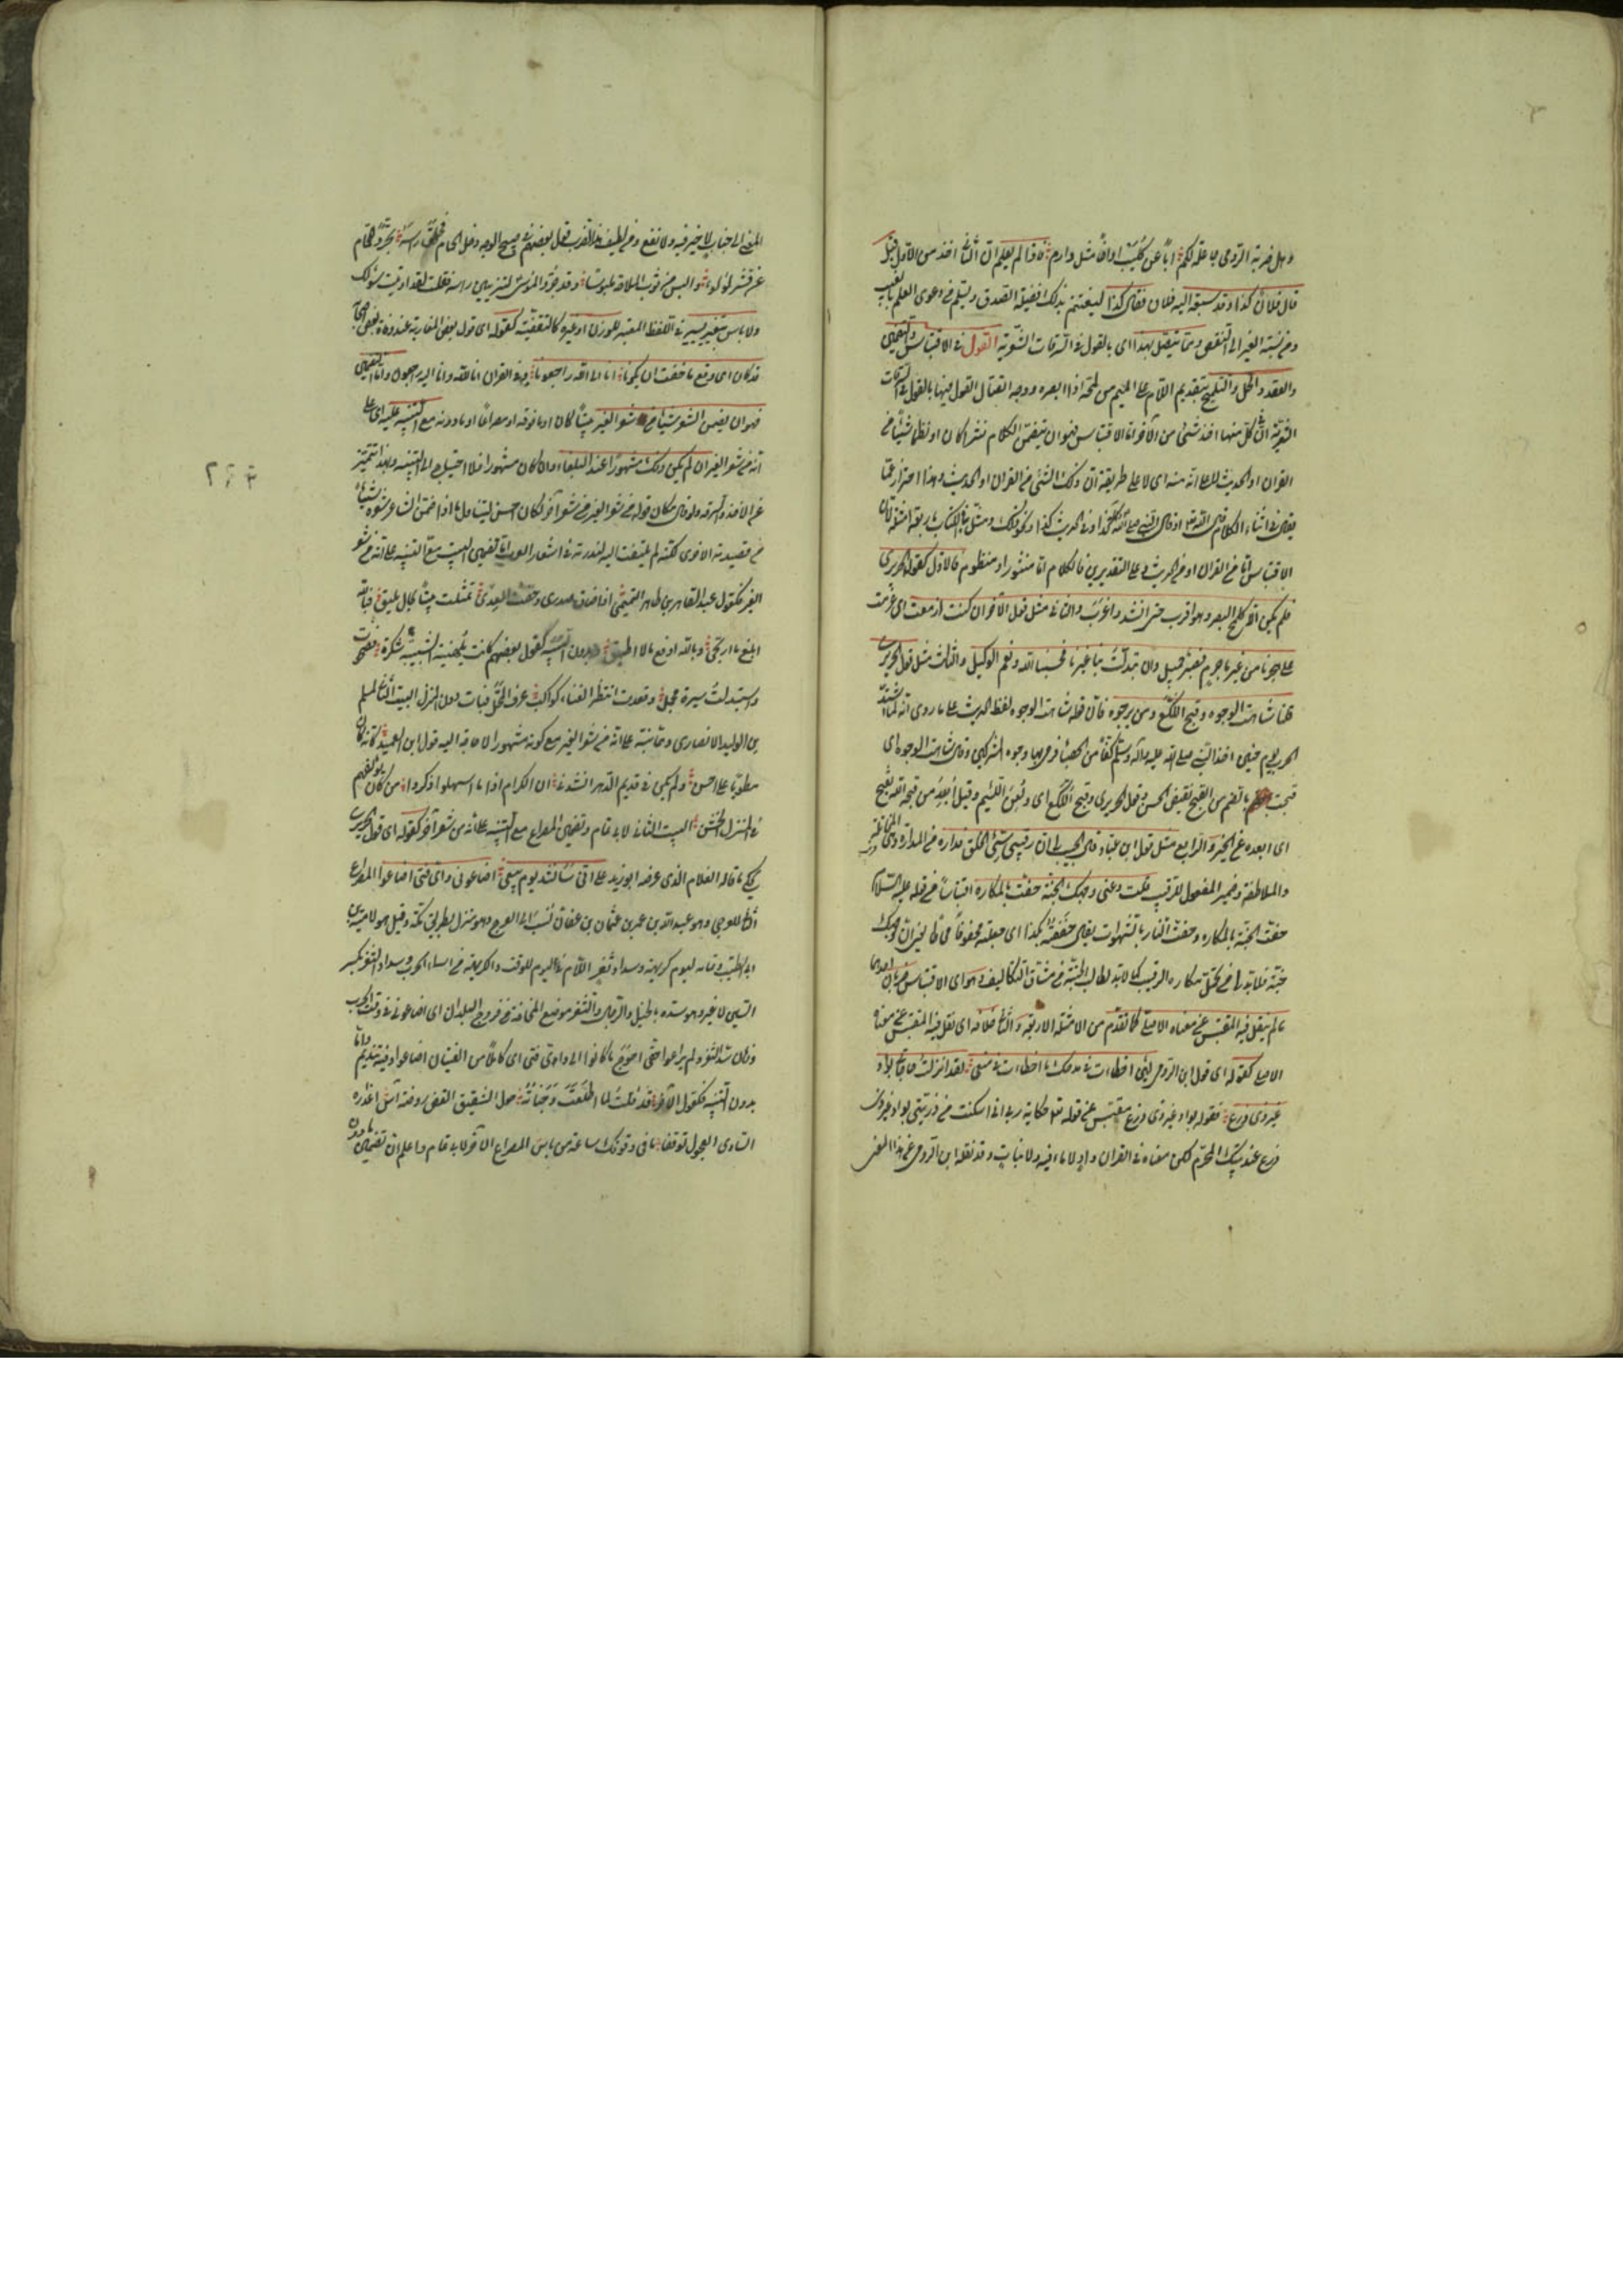 وهل ضربة الرومى جاعلة لكم اباً عن كليب او اباً مثل دارم فاذا لم يعلم ان الثانى اخذ من الاول قيل
قال فلان كذا وقد سبقه اليه فلان فقال كذا ليغتنم بذلك فضيلة الصدق ويسلم من دعوى العلم بالغيب
ومن نسبة الغير الى النقص ومما يتصل بهذا اى بالقول فى السرقات الشعرية القول فى الاقتباس والتضمين
والعقد والحل والتلميح بتقديم اللام على الميم من لمحه اذا ابصره ووجه اتصال القول فيها بالقول فى السرقات
الشعرية ان كل منها اخذ شئ من الآخر اما الاقتباس فهو ان يضمن الكلام نثرا كان او نظما شيئاً من
القران او الحديث لا على انه منه اى لا على طريقة ان ذلك الشئ من القران او الحديث وهذا احتراز عما
يقال فى اثناء الكلام قال الله تعالى او قال النبى صلى الله كذا وفى الحديث كذا ونحو ذلك ومثل فى الكتاب باربعة امثلة لان
الاقتباس اما من القران او من الحديث وعلى التقديرين فالكلام اما منثور او منظوم فالاول كقول الحريرى
فلم يكن الا كلمح البصر وهو اقرب حتى انشد واغرب والثانى مثل قول الآخر ان كنت ازمعت اى عزمت
على هجرنا من غير ما جرم فصبر جميل وان تبدلت بنا غيرنا فحسبنا الله ونعم الوكيل والثالث مثل قول الحريرى
قلنا شاهت الوجوه وقبح اللكع ومن يرجوه فان قوله شاهت الوجوه لفظ الحديث على ما روى انه لما اشتد
الحرب يوم حنين اخذ النبى صلى الله عليه وآله وسلم كفاً من الحصباء فرمى بها وجوه المشركين وقال شاهت الوجوه اى
قبحت بالضم من القبح نقيض الحسن وقول الحريرى وقبح اللكع اى ولعن اللئيم وقيل ابعد من قبحه الله بفتح
اى ابعده عن الخير والرابع مثل قول ابن عباد قال لى ان رقيبى سئ الخلق فداره من المداراة وهى المخاتلة
والملاطفة وضمير المفعول للرقيب قلت دعنى وجهك الجنة حفت بالمكاره اقتباساً من قوله عليه السلام
حفت الجنة بالمكاره وحفت النار بالشهوات يقال حففته بكذا اى جعلته محفوفاً محاطاً يعنى ان وجهك
جنة فلا بد لى من تحمل مكاره الرقيب كما لا بد لطالب الجنة من مشاق التكاليف وهو اى الاقتباس ضربان احدهما
ما لم ينقل فيه المقتبس عن معناه الاصلى كما تقدم من الامثلة الاربعة والثانى خلافه اى نقل فيه المقتبس عن معناه
الاصلى كقوله اى قول ابن الرومى لئن اخطأت فى مدحك ما اخطأت فى منعى لقد انزلت حاجاتى بواد
غير ذى زرع فقوله بواد غير ذى زرع مقتبس من قوله تعالى حكاية ربنا انى اسكنت من ذريتى بواد غير ذى
زرع عند بيتك المحرم لكن معناه فى القران واد لا ماء فيه ولا نبات وقد نقله ابن الرومى عن هذا المعنى
المعنى الى جناب لا خير فيه ولا نفع ومن لطيف هذا الضرب قول بعضهم فى صبيح الوجه دخل الحمام فحلق راسه تجرد للحمام
عن قشر لؤلؤ والبس من ثوب الملاحة ملبوسا وقد جرد الموسى لتزيين راسه فقلت لقد اوتيت سؤلك
ولا باس بتغيير يسير فى اللفظ المقتبس للوزن او غيره كالتقفية كقوله اى قول بعض المغاربة عند وفاة بعض اصحابه
قد كان اى وقع ما خفت ان يكونا انا الى الله راجعونا وفى القران انا لله وانا اليه راجعون واما التضمين
فهو ان يضمن الشعر شيئا من شعر الغير بيتاً كان او ما فوقه او مصراعاً او ما دونه مع التنبيه عليه اى على
انه من شعر الغير ان لم يكن ذلك مشهورا عند البلغاء وان كان مشهورا فلا احتياج الى التنبيه وبهذا يتميز
عن الاخذ والسرقة ولو قال مكان قوله من شعر الغير من شعر آخر لكان احسن ليتناول ما اذا ضمن الشاعر شعره شيئاً
من قصيدته الاخرى لكنه لم يلتفت اليه لندرته فى اشعار العرب اما تضمين البيت مع التنبيه على انه من شعر
الغير فكقول عبد القاهر بن طاهر التميمى اذا ضاق صدرى وخفت العدى تمثلت بيتاً بحالى يليق فبالله
ابلغ ما ارتجى وبالله ادفع ما لا اطيق وبدون التنبيه كقول بعضهم كانت بلهنية الشبيبة سكرة فصحوت
واستبدلت سيرة مجمل وقعدت انتظر الفناء كراكب عرف المحل فبات دون المنزل البيت الثانى لمسلم
بن الوليد الانصارى ومما نبه على انه من شعر الغير مع كونه مشهورا لا حاجة اليه قول ابن العميد كانه كان
مطويا على احن ولم يكن فى قديم الدهر انشدنى ان الكرام اذا ما اسهلوا ذكروا من كان يألفهم
فى المنزل الخشن البيت الثانى لابى تمام وتضمين المصراع مع التنبيه على انه من شعر آخر كقوله اى قول الحريرى
يحكى ما قاله الغلام الذى عرضه ابو زيد على انى سانشد يوم بيعى اضاعونى واى فتى اضاعوا المصراع
الثانى للعرجى وهو عبد الله بن عمر بن عثمان بن عفان نسب الى العرج وهو منزل بطريق مكة وقيل هو لامية بن
ابى الصلت وتمامه ليوم كريهة وسداد ثغر اللام فى ليوم للوقت والكريهة من اسماء الحرب وسداد الثغر بكسر
السين لا غير وهو سده بالخيل والرجال والثغر موضع المخافة من فروج البلدان اى اضاعونى فى وقت الحرب
وزمان سد الثغر ولم يراعوا حقى احوج ما كانوا الى واى فتى اى كاملاً من الفتيان اضاعوا وفيه تنديم واما
بدون التنبيه فكقول الآخر قد قلت لما اطلعت وجناته حول الشقيق الغض روضة آس اعذاره
السارى العجول توقفا ما فى وقوفك ساعة من باس المصراع الاخير لابى تمام واعلم ان تضمين ما دون